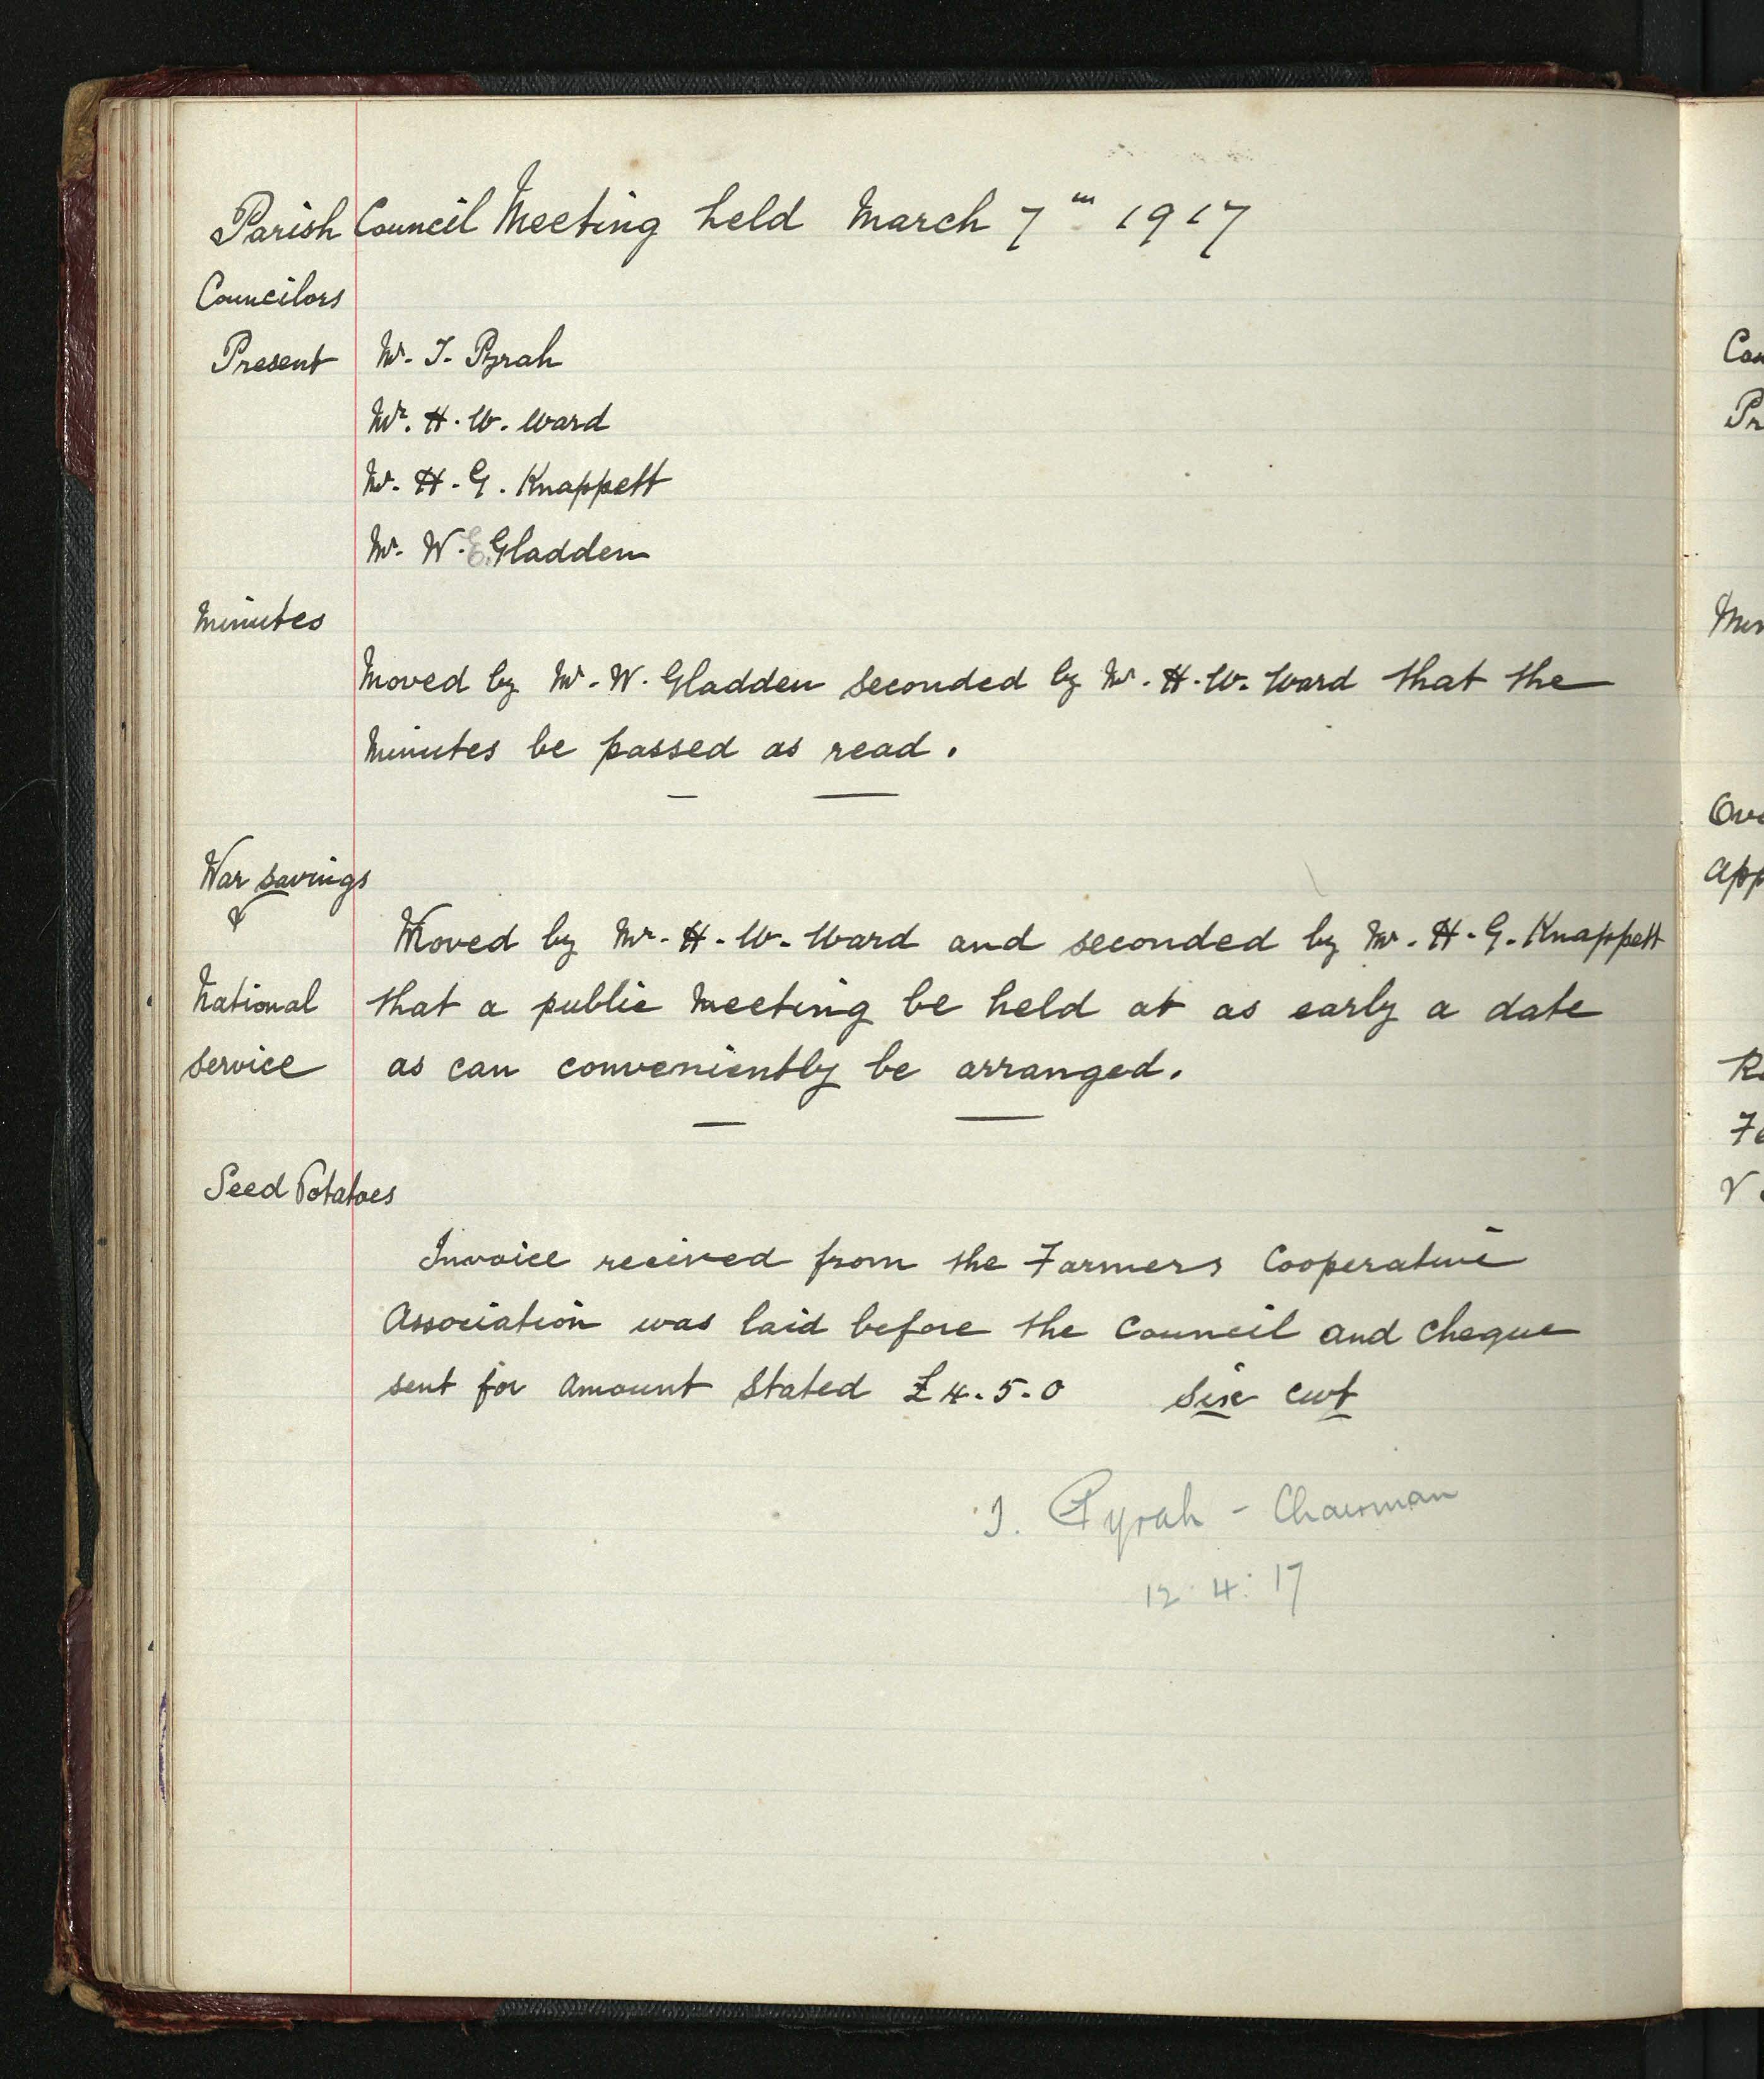 Parish Council Meeting held March 7th 1917
Councilors
Present Mr. J. Pyrah
Mr. H. W. Ward
Mr. H. G. Knappett
Mr. W. E. Gladden
Minutes
Moved by Mr. W. Gladden seconded by Mr. H. W. Ward that the
minutes be passed as read.
War savings
&
Moved by Mr. H. W. Ward and seconded by Mr. H. G. Knappett
National that a public meeting be held at as early a date
service as can conveniently be arranged.
Seed Potatoes
Invoice received from the Farmers Cooperative
Association was laid before the Council and cheque
sent for amount stated £4-5-0 six cwt
J. Pyrah - Chairman
12.4.17